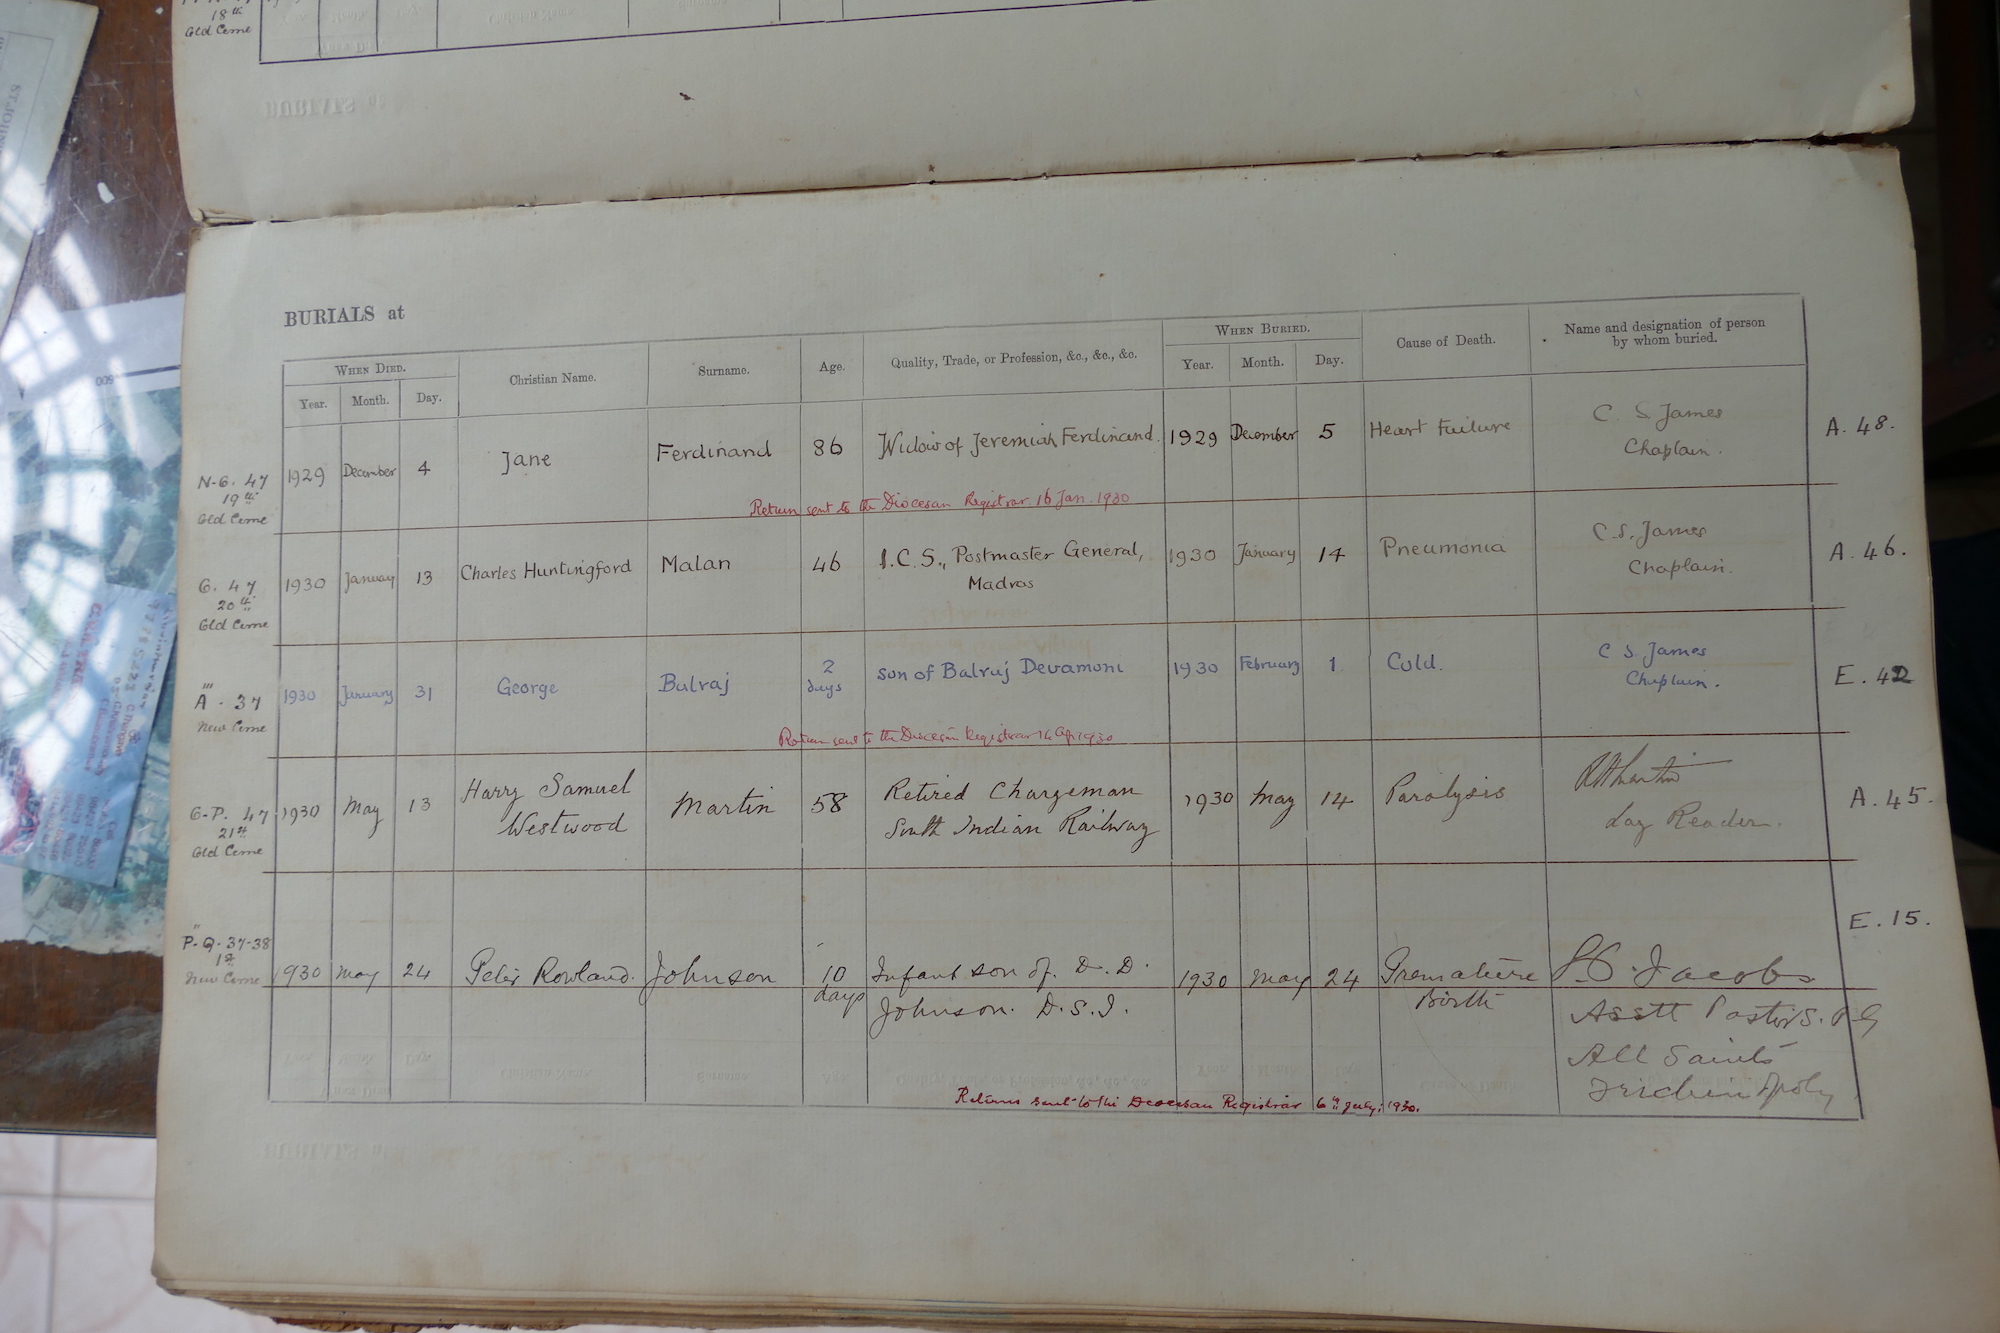 18th
Old Ceme
BURIALS at
WHEN DIED.
Christian Name.
Surname.
Age.
Quality, Trade, or Profession, &c., &c., &c.
WHEN BURIED.
Cause of Death.
Name and designation of person
by whom buried.
Year. Month. Day.
Year. Month. Day.
N-G. 47
19th
Old Ceme
1929 December 4 Jane Ferdinand 86 Widow of Jeremiah Ferdinand. 1929 December 5 Heart Failure C. S. James
Chaplain.
A. 48.
Return sent to the Diocesan Registrar 16 Jan. 1930
G. 47
20th
Old Ceme
1930 January 13 Charles Huntingford Malan 46 I.C.S., Postmaster General,
Madras
1930 January 14 Pneumonia C.S. James
Chaplain.
A. 46.
A''' . 37
New Ceme
1930 January 31 George Balraj 2
days
son of Balraj Devamoni 1930 February 1 Cold. C S. James
Chaplain.
E. 42
Return sent to the Diocesan Registrar 14 Ap 1930
G-P. 47
21st
Old Ceme
1930 May 13 Harry Samuel
Westwood
Martin 58 Retired Chargeman
South Indian Railway
1930 May 14 Paralysis
Lay Reader.
A. 45.
P-Q-37-38
New Ceme
1930 May 24 Peter Rowland. Johnson 10
days
Infant son of. D. D.
Johnson. D.S.I.
1930 May 24 Premature
Birth
Jacobs
Asstt Pastor S.P.G
All Saints
Trichinopoly
E. 15.
Returns sent to the Diocesan Registrar 6th July, 1930.